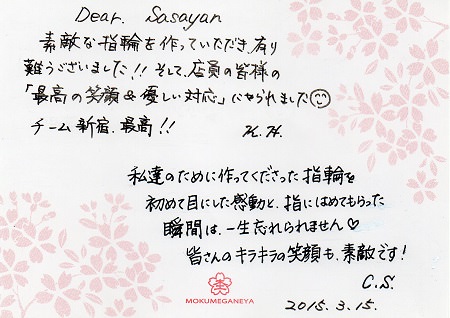 Dear. Sasayan
素敵な指輪を作っていただき、有り
難うございました!! そして、店員の皆様の
「最高の笑顔&優しい対応」にやられました☺
チーム新宿、最高!! K.H.
私達のために作ってくださった指輪を
初めて目にした感動と、指にはめてもらった
瞬間は、一生忘れられません♡
皆さんのキラキラの笑顔も、素敵です!
C.S.
MOKUMEGANEYA
2015.3.15.